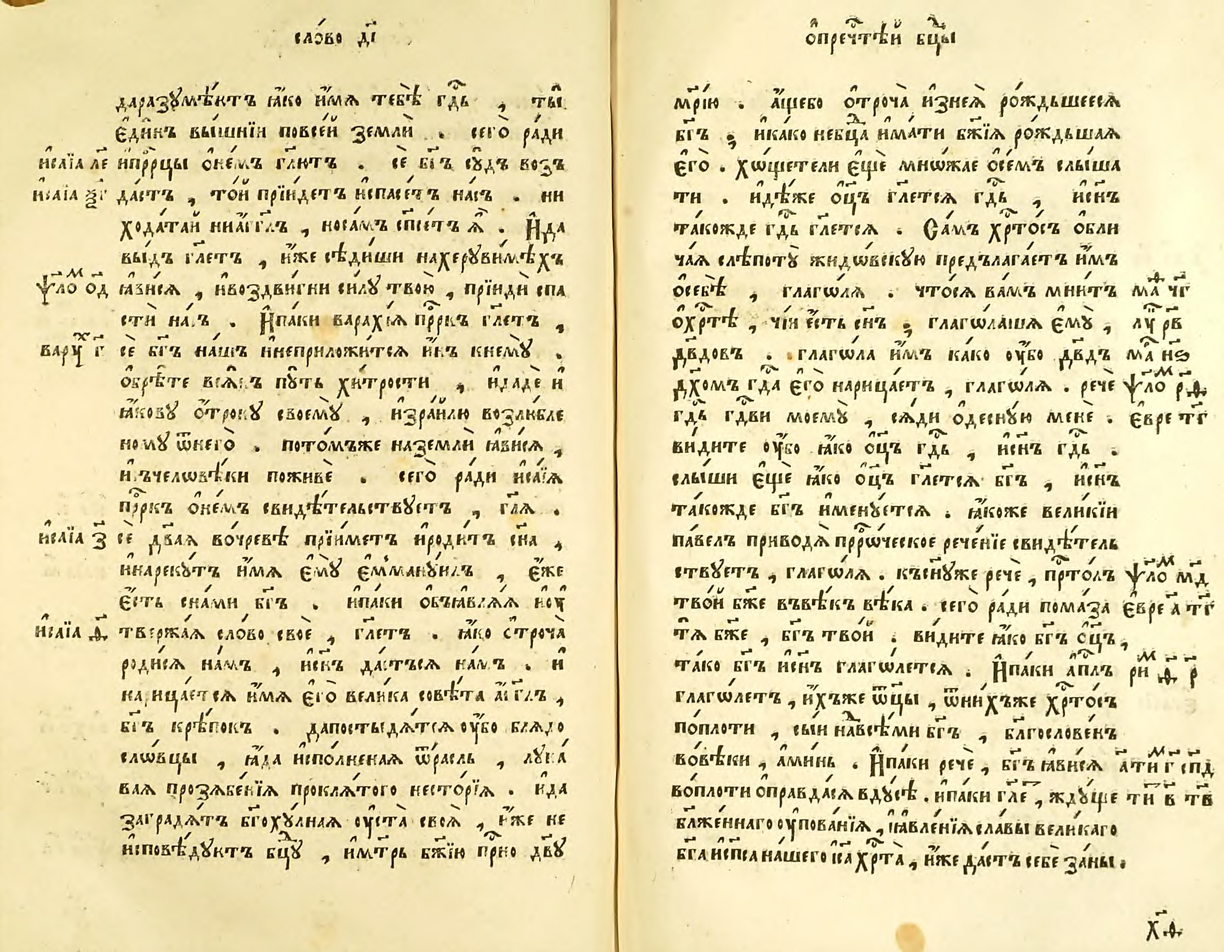 сло́во д҃і
даразꙋмѣ́ютъ ꙗ҆́ко и҆́мѧ тебѣ̀ гд҇ь , ты̀
є҆ди́нъ вы́шнїи повсе́й землѝ . сего̀ ра́ди
и҆са́їа ле и҆прⷪ҇рцы ѻ҆не́мъ гл҃ютъ . сѐ бг҃ъ сꙋ́дъ воз
и҆са́їа ѯ҃г да́стъ , то́й прїи́детъ и҆спасе́тъ на́съ . ни
хода́таи ниа҆́гг҃лъ , носа́мъ сп҃се́тъ ѧ҆̀ . И҆да
вы́дъ гл҃етъ , и҆́же сѣди́ши нахерꙋви́мѣхъ
ѱало ѻ҃д ꙗ҆ви́сѧ , и҆воздви́гни си́лꙋ твою̀ , прїидѝ спа
стѝ на́съ . И҆па́ки варахі́ѧ прⷪ҇ркъ гл҃етъ ,
варꙋх г҃ сѐ бг҃ъ на́шъ и҆неприложи́тсѧ и҆́нъ кнемꙋ̀ .
ѻ҆брѣ́те всѧ́къ пꙋ́ть хи́трости , и҆дадѐ и҆
ꙗ҆́ковꙋ ѻ҆́трокꙋ своемꙋ̀ , и҆зра́илю возлю́бле
номꙋ ѿнего̀ . пото́мъже наземлѝ ꙗ҆ви́сѧ ,
и҆съчеловѣ́ки поживѐ . сего̀ ра́ди и҆са́їѧ
прⷪ҇ркъ ѻ҆не́мъ свидѣ́тельствꙋетъ , гл҃ѧ .
и҆са́їа з҃ сѐ дв҃аѧ вочре́вѣ прїи́метъ и҆роди́тъ сн҃а ,
и҆нарекꙋ́тъ и҆́мѧ є҆мꙋ̀ є҆мманꙋ́илъ , є҆́же
є҆́сть сна́ми бг҃ъ . и҆па́ки ѻ҆бъꙗвлѧ́ѧ и҆оу҆
и҆са́їа ѳ҃ твержа́ѧ сло́во своѐ , гл҃етъ . ꙗ҆́ко ѻ҆троча̀
роди́сѧ на́мъ , и҆сн҃ъ да́стъсѧ на́мъ . и҆
нарица́етсѧ и҆́мѧ є҆гѡ̀ вели́ка совѣ́та а҆́гг҃лъ ,
бг҃ъ крѣ́покъ . дапостыдѧ́тсѧ оу҆́бо блѧдо
сло́вцы , ꙗ҆́да и҆спо́лненаѧ ѿрасль , лꙋка́
ваѧ прозѧбе́нїѧ проклѧ́того несто́рїѧ . и҆да
заградѧ́тъ бг҃охꙋ́лнаѧ оу҆ста̀ своѧ̀ , и҆́же не
и҆сповѣ́дꙋютъ бц҃ꙋ , и҆м҃трь бж҃їю при҇о дв҃ꙋ
ѻ҆пречⷭ҇тѣй бц҃ы
мр҃і́ю . а҆́щебо ѻ҆троча̀ и҆знеѧ̀ ро́ждьшеесѧ
бг҃ъ ; и҆ка́ко небц҃а и҆́мати бж҃їѧ ро́ждьшаѧ
є҆го̀ . хо́щетели є҆щѐ мно́жае ѻ҆се́мъ слы́ша
ти . и҆дѣ́же ѻц҃ъ гл҃етсѧ гд҇ь , и҆сн҃ъ
та́кожде гд҇ь гл҃етсѧ . Са́мъ хрⷭ҇то́съ ѻ҆бли
ча́ѧ слѣпотꙋ̀ жидо́вскꙋю предълага́етъ и҆́мъ
ѻ҆себѣ̀ , глаго́лѧ . что́сѧ ва́мъ мни́тъ ма҃ч҃г
ѻ҆хрⷭ҇тѣ̀ , чі́и є҆́сть сн҃ъ ; глаго́лашѧ є҆мꙋ̀ , лꙋ҃ р҃в
дв҃довъ . глаго́ла и҆́мъ ка́ко оу҆́бо дв҃дъ
дх҃омъ гд҇а є҆го̀ нарица́етъ , глаго́лѧ . речѐ ѱало р҃ѳ
гд҇ь гд҇ви моемꙋ̀ , сѧ́ди ѻ҆деснꙋ́ю менѐ . є҆вре
ви́дите оу҆́бо ꙗ҆́ко ѻц҃ъ гд҇ь , и҆сн҃ъ гд҇ь .
слы́ши є҆щѐ ꙗ҆́ко ѻц҃ъ гл҃етсѧ бг҃ъ , и҆сн҃ъ
та́кожде бг҃ъ и҆менꙋ́етсѧ . ꙗ҆́коже вели́кїи
па́велъ приводѧ̀ прⷪ҇ро́ческое рече́нїе свидѣ́тель
ствꙋетъ , глаго́лѧ . къснꙋ́же рече , прⷭ҇то́лъ ѱало м҃д
тво́й бж҃е въвѣ́къ вѣ́ка . сего̀ ра́ди пома́за є҆вре а҃
тѧ̀ бж҃е , бг҃ъ тво́й . ви́дите ꙗ҆́ко бг҃ъ ѻц҃ъ ,
та́ко бг҃ъ и҆сн҃ъ глаго́летсѧ . И҆па́ки а҆пⷭ҇лъ ри ѳ҃
глаго́летъ , и҆́хъже ѻ҆тц҃ы , ѿни́хъже хрⷭ҇то́съ
попло́ти , сы́и надвсѣ́ми бг҃ъ , блг҃ослове́нъ
вовѣ́ки , а҆ми́нь . И҆па́ки речѐ , бг҃ъ ꙗ҆ви́сѧ а҃ ти г҃
вопло́ти ѻ҆правда́сѧ вдꙋ́сѣ . и҆па́ки гл҃е , ждꙋ́ще
бл҃же́ннаго оу҆пова́нїѧ , и҆ꙗвле́нїѧ сла́вы вели́каго
бг҃а и҆сп҃са на́шего і҆с҃а хрⷭ҇та̀ , и҆́же да́стъ себѐ заны̀ .
х҃ѳ